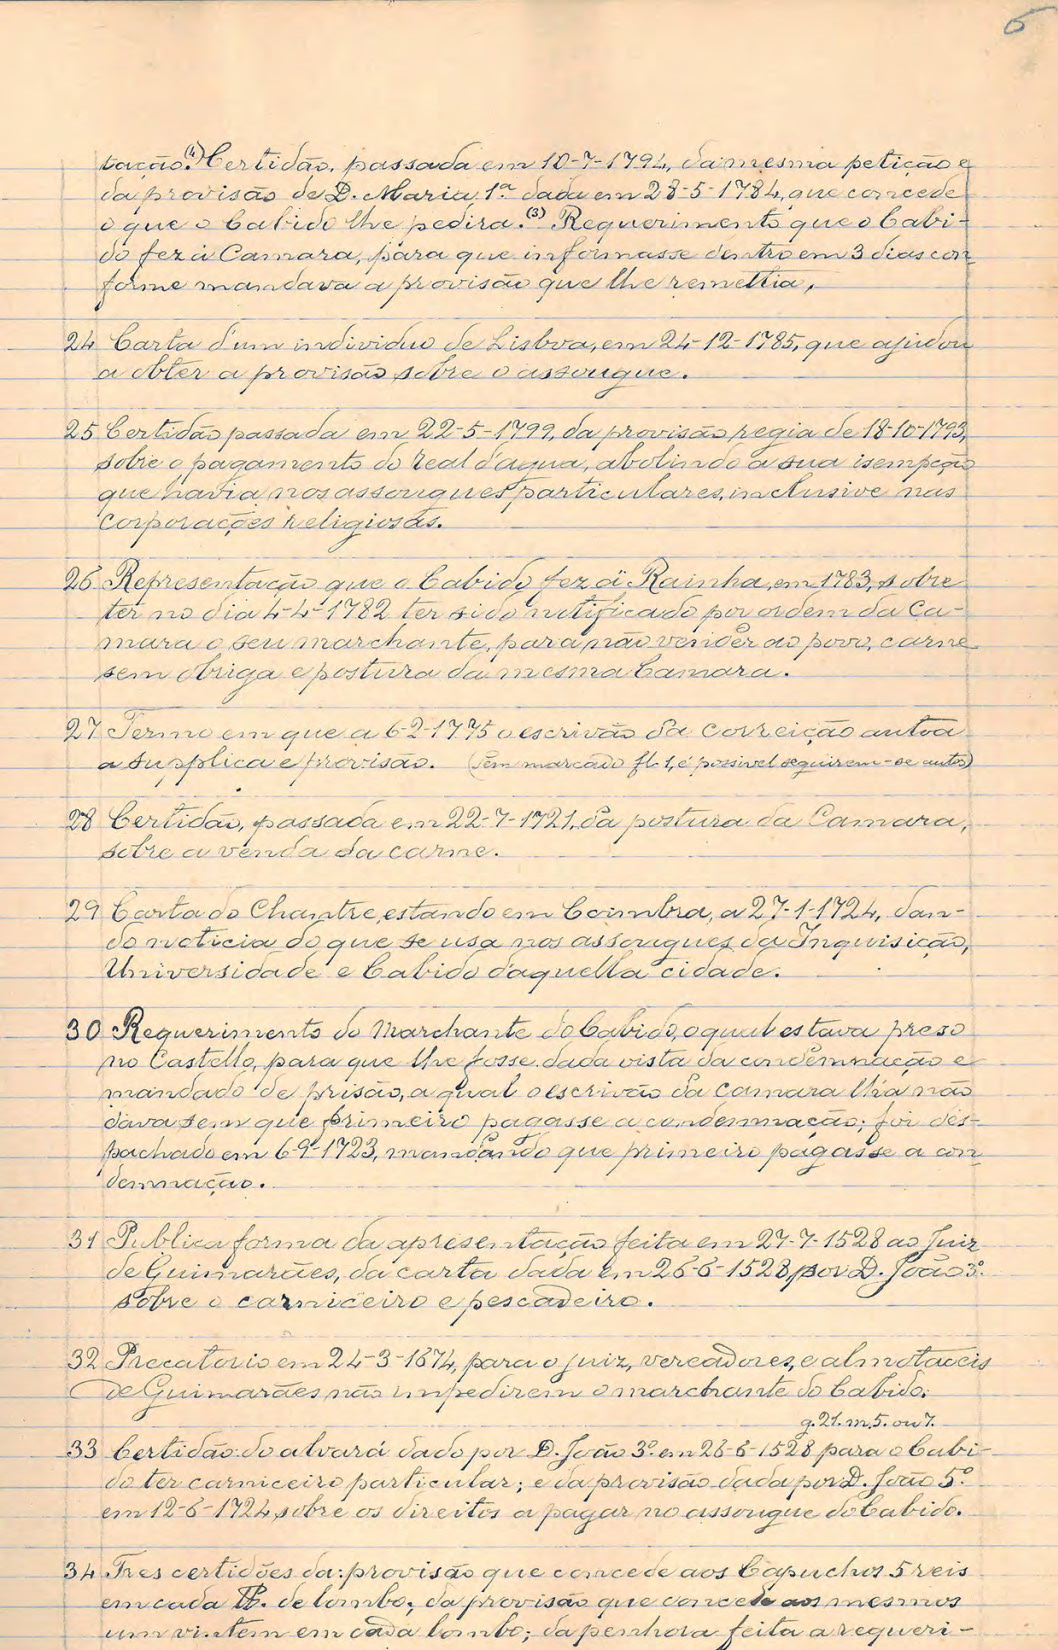 6
tação.(4) Certidão, passada em 10-7-1794, da mesma petição e
da provisão de D. Maria, 1.ª dada em 28-5-1784, que concede
o que o Cabido lhe pedira.(3) Requerimento que o Cabi-
do fez á Camara, para que informasse dentro em 3 dias con
forme mandava a provisão que lhe remettia,
24 Carta d'um individuo de Lisboa, em 24-12-1785, que ajudou
a obter a provisão sobre o assougue.
25 Certidão passada em 22-5-1799, da provisão regia de 18-10-1793,
sobre o pagamento do real d'agua, abolindo a sua isempção
que havia nos assougues particulares, inclusive nas
corporações religiosas.
26 Representação que o Cabido fez á Rainha, em 1783, sobre
ter no dia 4-4-1782 ter sido notificado por ordem da Ca-
mara o seu marchante, para não vender ao povo, carne
sem obriga e postura da mesma Camara.
27 Termo em que a 6-2-1775 o escrivão da correição autoa
a supplica e provisão. (Tem marcado fl. 1, é possivel seguirem-se autos)
28 Certidão, passada em 22-7-1721, da postura da Camara,
sobre a venda da carne.
29 Carta do Chantre, estando em Coimbra, a 27-1-1724, dan-
do noticia do que se usa nos assougues da Inquisição,
Universidade e Cabido daquella cidade.
30 Requerimento do Marchante do Cabido, o qual estava preso
no Castello, para que lhe fosse dada vista da condemnação e
mandado de prisão, a qual o escrivão da camara lh'a não
dava sem que primeiro pagasse a condemnação; foi des-
pachado em 6-9-1723, mandando que primeiro pagasse a con
demnação.
31 Publica forma da apresentação feita em 27-7-1528 ao Juiz
de Guimarães, da carta dada em 26-6-1528 por D. João 3.º
sobre o carniceiro e pescadeiro.
32 Precatorio em 24-3-1674, para o juiz, vereadores, e almotaceis
de Guimarães não impedirem o marchante do Cabido.
g. 21. m. 5. ou 7.
33 Certidão: do alvará dado por D. João 3.º em 26-6-1528 para o Cabi-
do ter carniceiro particular; e da provisão dada por D. João 5.º
em 12-6-1724 sobre os direitos a pagar no assougue do Cabido.
34 Tres certidões da: provisão que concede aos Capuchos 5 reis
em cada lb. de lombo; da provisão que concede aos mesmos
um vintem em cada lombo; da penhora feita a requeri-